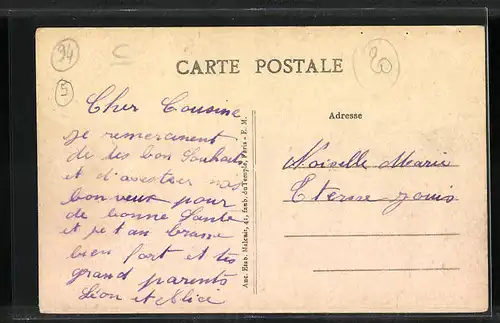 94
5
20
CARTE POSTALE
Cher Cousine
je remercient
de tes bon Souhaits
et d'avertser nos
bon veux pour
de bonne Sante
et je t an brasse
bien fort et tes
grand parents
Léon et Alice
Anc. Etab. Malcuit, 41, faub. du Temple, Paris - E. M.
Adresse
Noiselle Marie